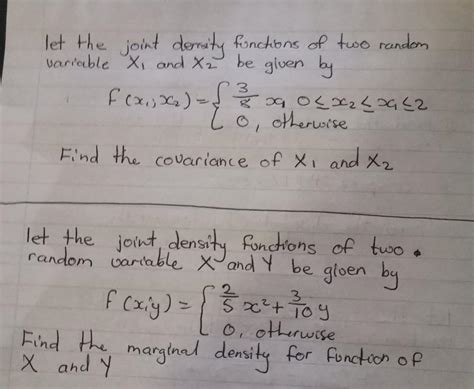 let the joint density functions of two random
variable X₁ and X₂ be given by
f(x₁,x₂) = { 3/8 x₁ 0≤x₂≤x₁≤2
0, otherwise
Find the covariance of X₁ and X₂
let the joint density functions of two
random variable X and Y be given by
f(x,y) = { 2/5 x² + 3/10 y
0, otherwise
Find the marginal density for function of
X and Y